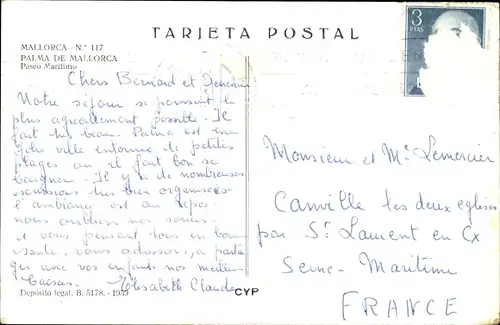 TARJETA POSTAL
3
PTAS
MALLORCA - N.º 117
PALMA DE MALLORCA
Paseo Marítimo
Chers Bernard et
Notre séjour se poursuit le
plus agréablement possible. Il
fait très beau. Palma est une
jolie ville entourée de petites
plages où il fait bon se
baigner. Il y a de nombreuses
excursions très bien organisées
l'ambiance est au repos
nous oublions nos soucis
et vous pensant tous en bonne
santé, vous adressons, à partager
avec vos enfants nos meilleurs
baisers. Elisabeth Claude
Depósito legal. B. 5178. - 1959
CYP
Monsieur et Me Lemercier
Canville les deux églises
par St Laurent en Cx
Seine-Maritime
FRANCE